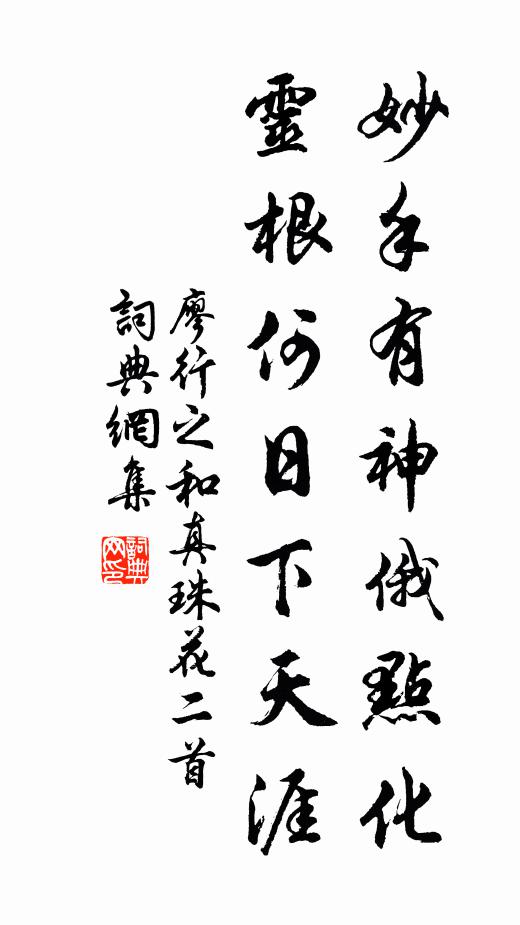 妙手有神俄點化
靈根何日下天涯
廖行之和真珠花二首
詞典網集
詞典
网印